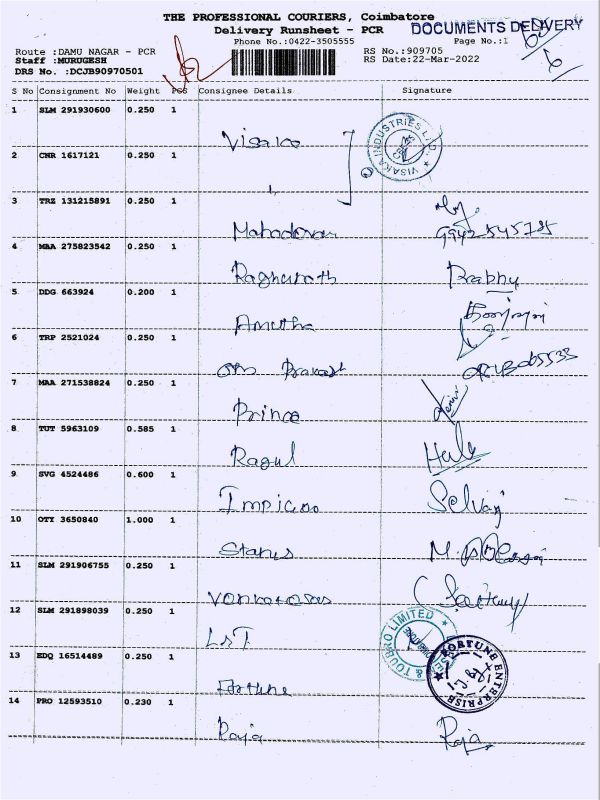 THE PROFESSIONAL COURIERS, Coimbatore
Delivery Runsheet - PCR
DOCUMENTS DELIVERY
Phone No.:0422-3505555
Page No.:1
Route :DAMU NAGAR - PCR
RS No.:909705
Staff :MURUGESH
RS Date:22-Mar-2022
DRS No. :DCJB90970501
S No Consignment No Weight PCS Consignee Details Signature
1 SLM 291930600 0.250
Visaka
VISAKA INDUSTRIES LTD.
2 CNR 1617121 0.250 1
3 TRZ 131215891 0.250 1
Mahadevan
4 MAA 275823542 0.250 1
Raghunath Prabhu
5 DDG 663924 0.200 1
Amutha
6 TRP 2521024 0.250 1
Om Prakash
7 MAA 271538824 0.250 1
Prince
8 TUT 5963109 0.585 1
Ragul
9 SVG 4524486 0.600 1
Selvaj
10 OTY 3650840 1.000 1
Stanes
11 SLM 291906755 0.250 1
12 SLM 291898039 0.250 1
L&T
& TOUBRO LIMITED
13 EDQ 16514489 0.250 1
Fortune
FORTUNE ENTERPRISE
14 PRO 12593510 0.230 1
Raja Raja